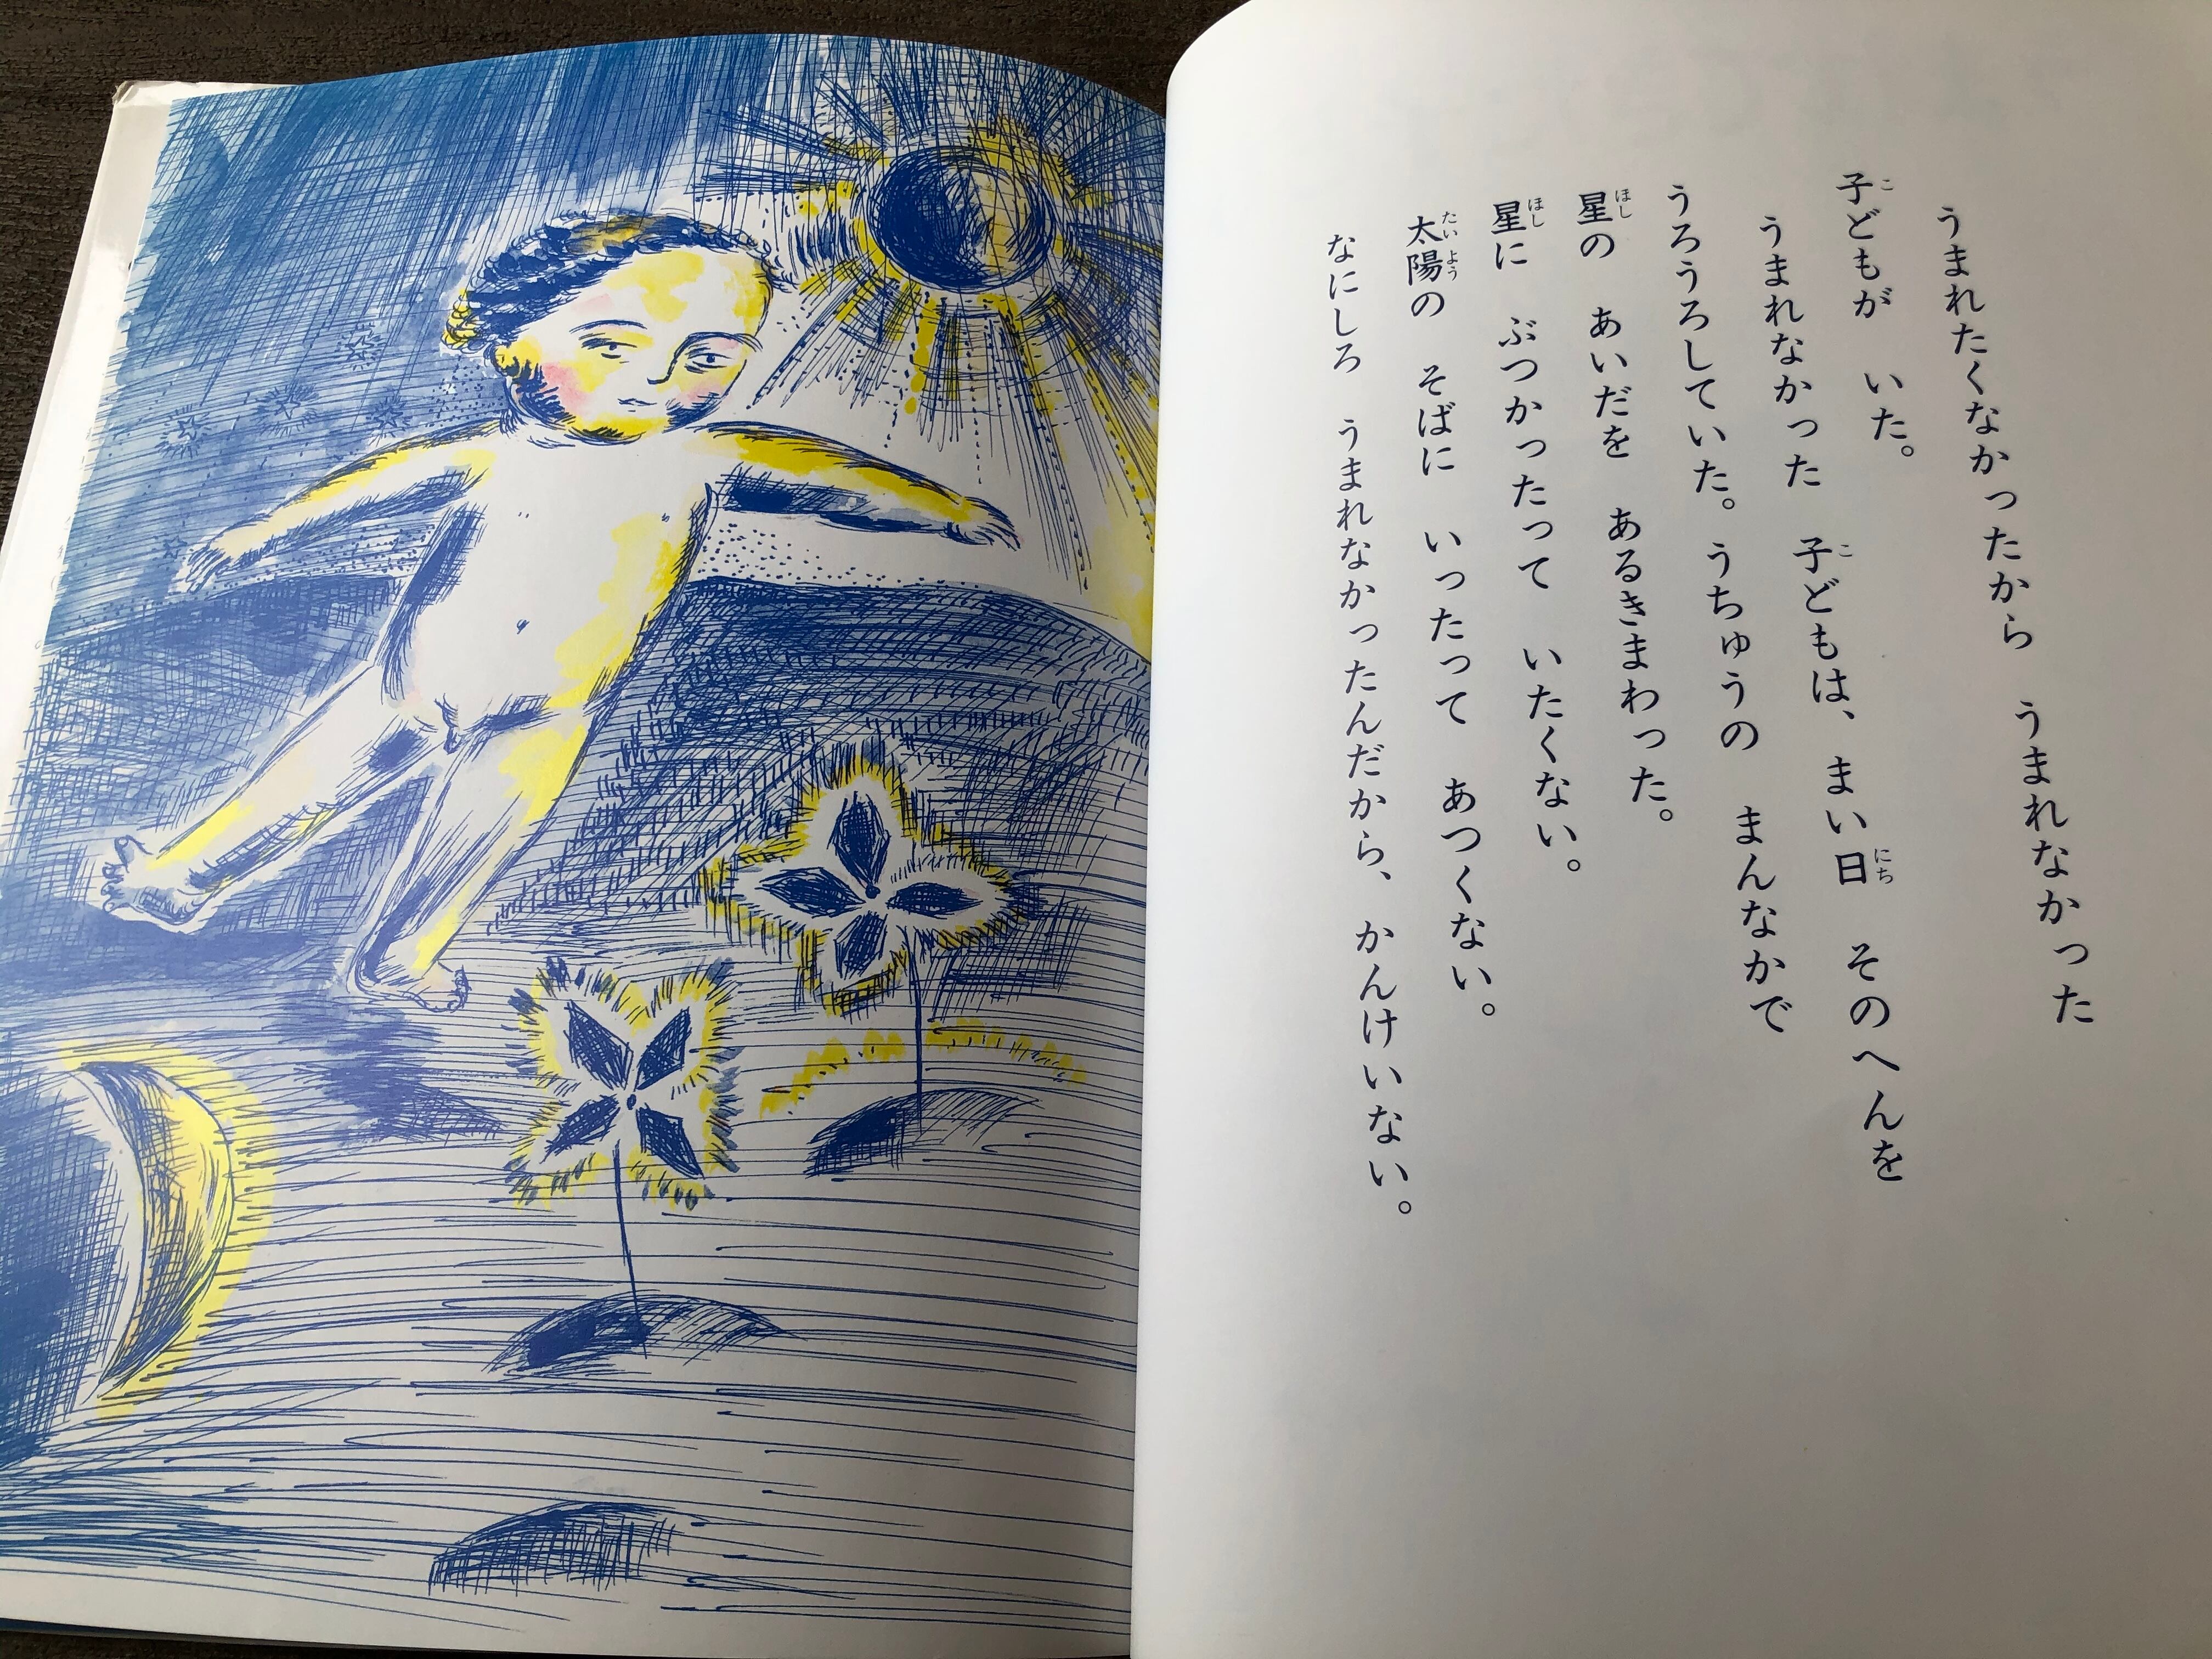 うまれたくなかったから　うまれなかった
子どもが　いた。
うまれなかった　子どもは、まい日　そのへんを
うろうろしていた。うちゅうの　まんなかで
星の　あいだを　あるきまわった。
星に　ぶつかったって　いたくない。
太陽の　そばに　いったって　あつくない。
なにしろ　うまれなかったんだから、かんけいない。